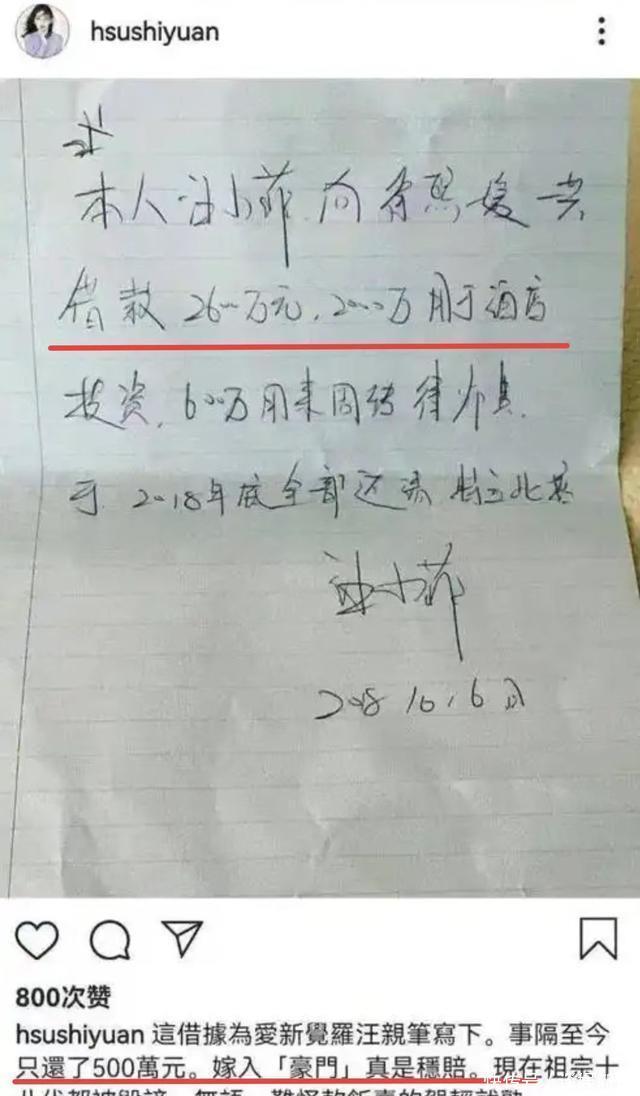 hsushiyuan
本人汪小菲向徐熙媛共
借款2600万元,2000万用于酒店
投资,600万用来周转律师费.
于2018年底全部还清 特立此据
汪小菲
2018 10,6日
800次赞
hsushiyuan 這借據為愛新覺羅汪親筆寫下。事隔至今
只還了500萬元。嫁入「豪門」真是穩賠。現在祖宗十